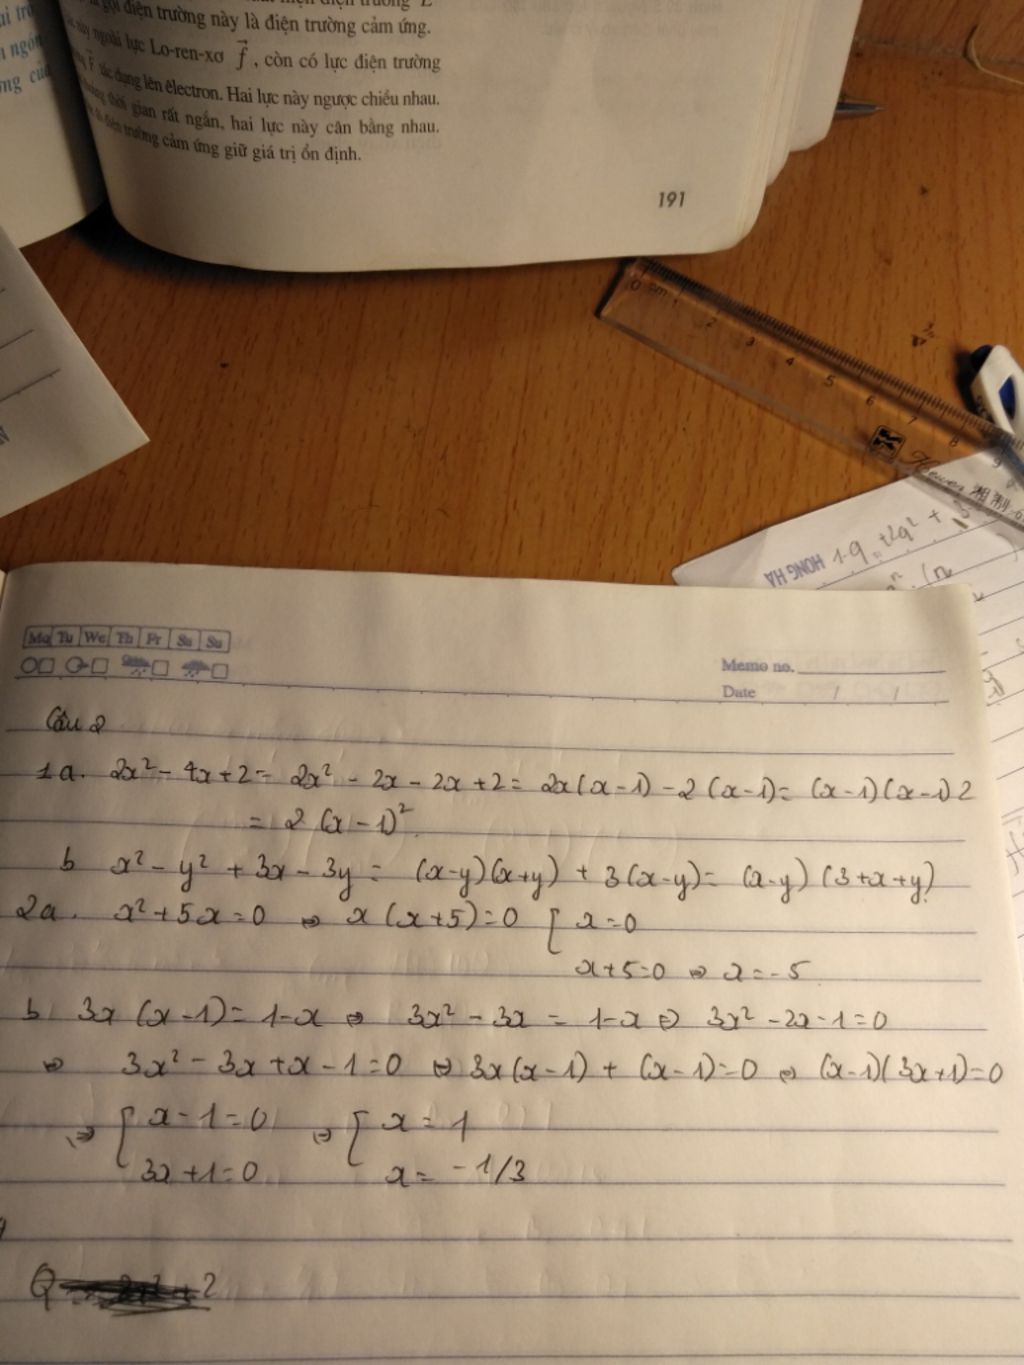 điện trường
gọi điện trường này là điện trường cảm ứng.
này ngoài lực Lo-ren-xơ f⃗, còn có lực điện trường
F⃗ tác dụng lên êlectron. Hai lực này ngược chiều nhau.
thời gian rất ngắn, hai lực này cân bằng nhau.
điện trường cảm ứng giữ giá trị ổn định.
191
0 cm 1 2 3 4 5 6 7 8 9
HONG HA
1-q + 2q² +
Mo Tu We Th Fr Sa Su
Memo no.
Date / /
Câu 2
1a. 2x² - 4x + 2 = 2x² - 2x - 2x + 2 = 2x(x-1) - 2(x-1) = (x-1)(x-1)2
= 2(x-1)².
b x² - y² + 3x - 3y = (x-y)(x+y) + 3(x-y) = (x-y)(3+x+y)
2a. x² + 5x = 0 ⇔ x(x+5) = 0 [ x = 0
x+5=0 ⇔ x = -5
b 3x(x-1) = 1-x ⇔ 3x² - 3x = 1-x ⇔ 3x² - 2x - 1 = 0
⇔ 3x² - 3x + x - 1 = 0 ⇔ 3x(x-1) + (x-1) = 0 ⇔ (x-1)(3x+1) = 0
⇔ [ x - 1 = 0 ⇔ [ x = 1
3x + 1 = 0 x = -1/3
Q 2